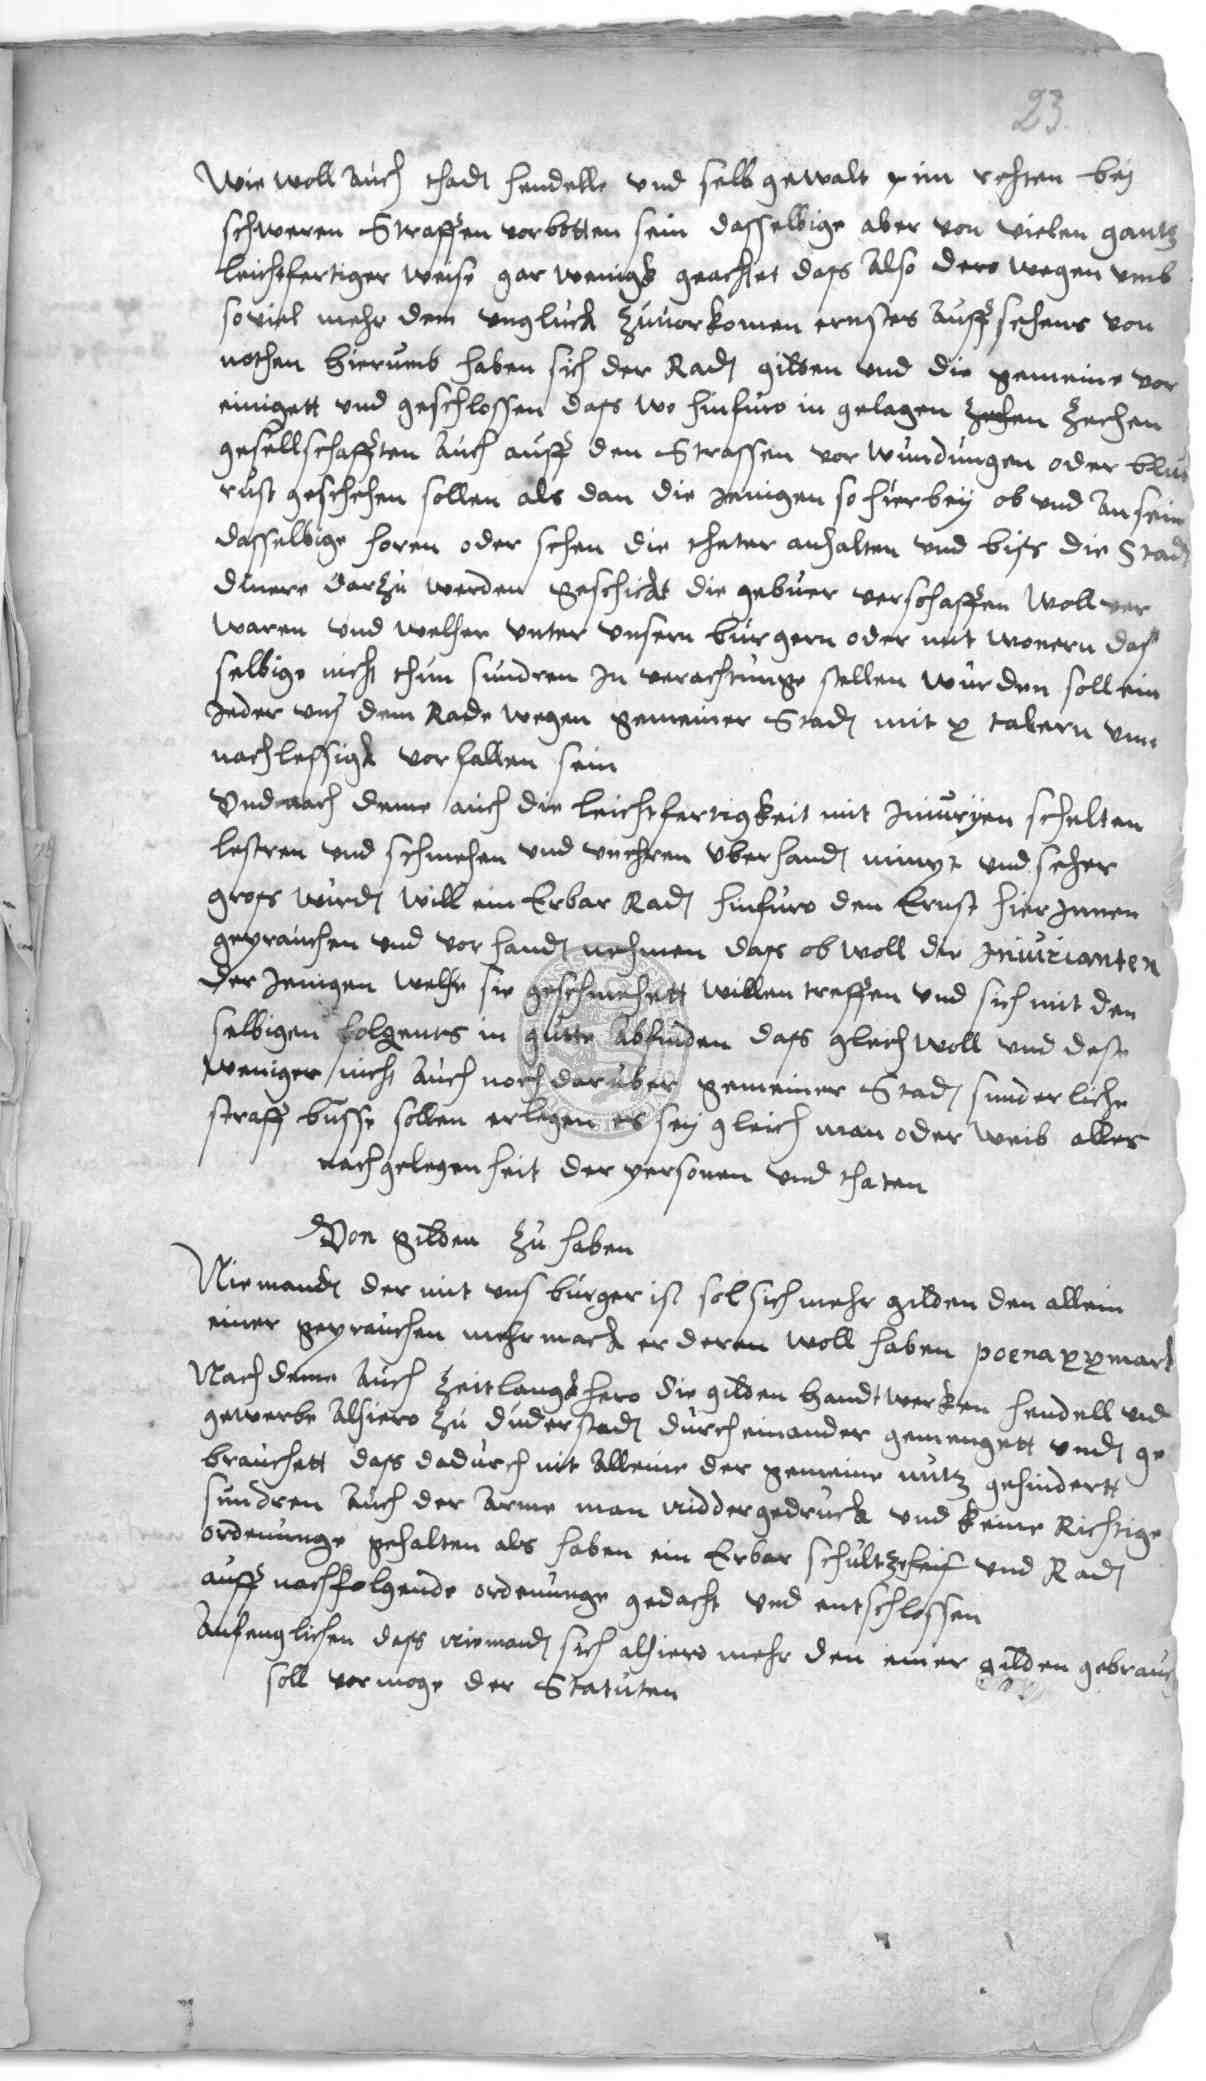 23.
Wie woll auch thadt hendelle und selb gewalt im rechten bey
schweren Straffen vorbotten sein dasselbige aber von vielen gantz
leichtfertiger weise gar wenigk geachtet dass also dero wegen umb
soviel mehr dem ungluck zuuorkomen ernstes auffsehens von
nothen hierumb haben sich der Radt gilden und die gemeine vor
einigett und geschlossen dass wo hinfuro in gelagen zechen zechen
geselschafften auch auff den Strassen vorwundungen oder blut
rust geschehen sollen als dan die jenigen so hierbey ob und an sein
dasselbige horen oder sehen die theter anhalten und biss die Stadt
dinere darzu werden geschickt die gebuer verschaffen woll ver
waren und welcher unter unsern burgern oder mit wonern das
selbige nicht thun sundren in verachtunge stellen wurden soll ein
jeder uns dem Rade wegen gemeiner Stadt mit x talern un
nachlessigk vorfallen sein
Und nach deme auch die leichtfertigkeit mit iniuryen schelten
lestren und schmehen und unehren uberhandt nimpt und seher
gross wirdt will ein Erbar Radt hinfuro den Ernst hier innen
geprauchen und vor handt nehmen dass ob woll die iniurianten
der jenigen welche sie geschmehett willen treffen und sich mit den
selbigen folgents in gutte abfinden dass gleich woll und deste
weniger nicht auch noch daruber gemeiner Stadt sunderliche
straff busse sollen erlegen es sey gleich man oder weib alles
nach gelegenheit der personen und thaten
Von gilden zu haben
Niemandt der mit uns burger ist sol sich mehr gilden den allein
einer geprauchen mehr mack er deren woll haben poena xx mark
Nach deme auch zeitlangk hero die gilden handtwerken hendell und
gewerbe alhiero zu duderstadt durch einander gemengett undt ge
brauchett dass dadurch nit alleine der gemeine nutz gehindertt
sundren auch der arme man niddergedruckt und keine Richtige
ordenunge gehalten als haben ein Erbar schultzheis und Radt
auff nachfolgende ordenunge gedacht und entschlossen
Anfenglichen dass niemandt sich alhiero mehr den einer gilden gebrauch
soll vormoge der Statuten